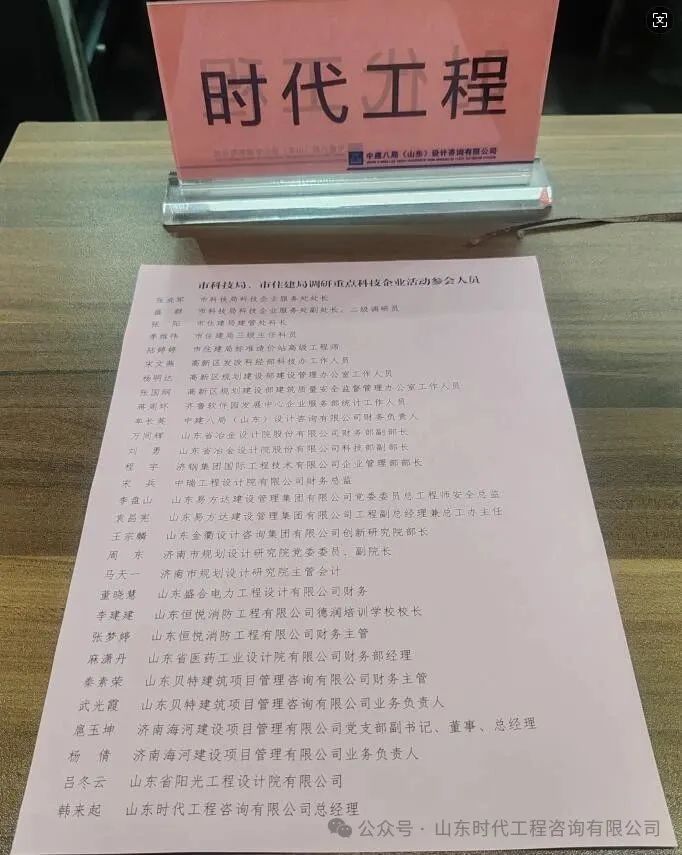 时代工程
中建八局（山东）设计咨询有限公司
市科技局、市住建局调研重点科技企业活动参会人员
张成军 市科技局科技企业服务处处长
盛群 市科技局科技企业服务处副处长、二级调研员
张阳 市住建局建管处科长
李维伟 市住建局三级主任科员
陆婷婷 市住建局标准造价站高级工程师
宋文燕 高新区发改科经部科技办工作人员
杨明达 高新区规划建设部建设管理办公室工作人员
张国纲 高新区规划建设部建筑质量安全监督管理办公室工作人员
蒋周环 齐鲁软件园发展中心企业服务部统计工作人员
车长英 中建八局（山东）设计咨询有限公司财务负责人
万同辉 山东省冶金设计院股份有限公司财务部副部长
刘勇 山东省冶金设计院股份有限公司科技部副部长
程宇 济钢集团国际工程技术有限公司企业管理部部长
宋兵 中瑞工程设计院有限公司财务总监
李盘山 山东易方达建设管理集团有限公司党委委员总工程师安全总监
袁昌宪 山东易方达建设管理集团有限公司工程副总经理兼总工办主任
王宗麟 山东金衢设计咨询集团有限公司创新研究院部长
周东 济南市规划设计研究院党委委员、副院长
马天一 济南市规划设计研究院主管会计
董晓慧 山东盛合电力工程设计有限公司财务
李建建 山东恒悦消防工程有限公司德润培训学校校长
张梦婷 山东恒悦消防工程有限公司财务主管
麻潇丹 山东省医药工业设计院有限公司财务部经理
秦素荣 山东贝特建筑项目管理咨询有限公司财务主管
武光霞 山东贝特建筑项目管理咨询有限公司业务负责人
扈玉坤 济南海河建设项目管理有限公司党支部副书记、董事、总经理
杨倩 济南海河建设项目管理有限公司业务负责人
吕冬云 山东省阳光工程设计院有限公司
韩来起 山东时代工程咨询有限公司总经理
公众号·山东时代工程咨询有限公司